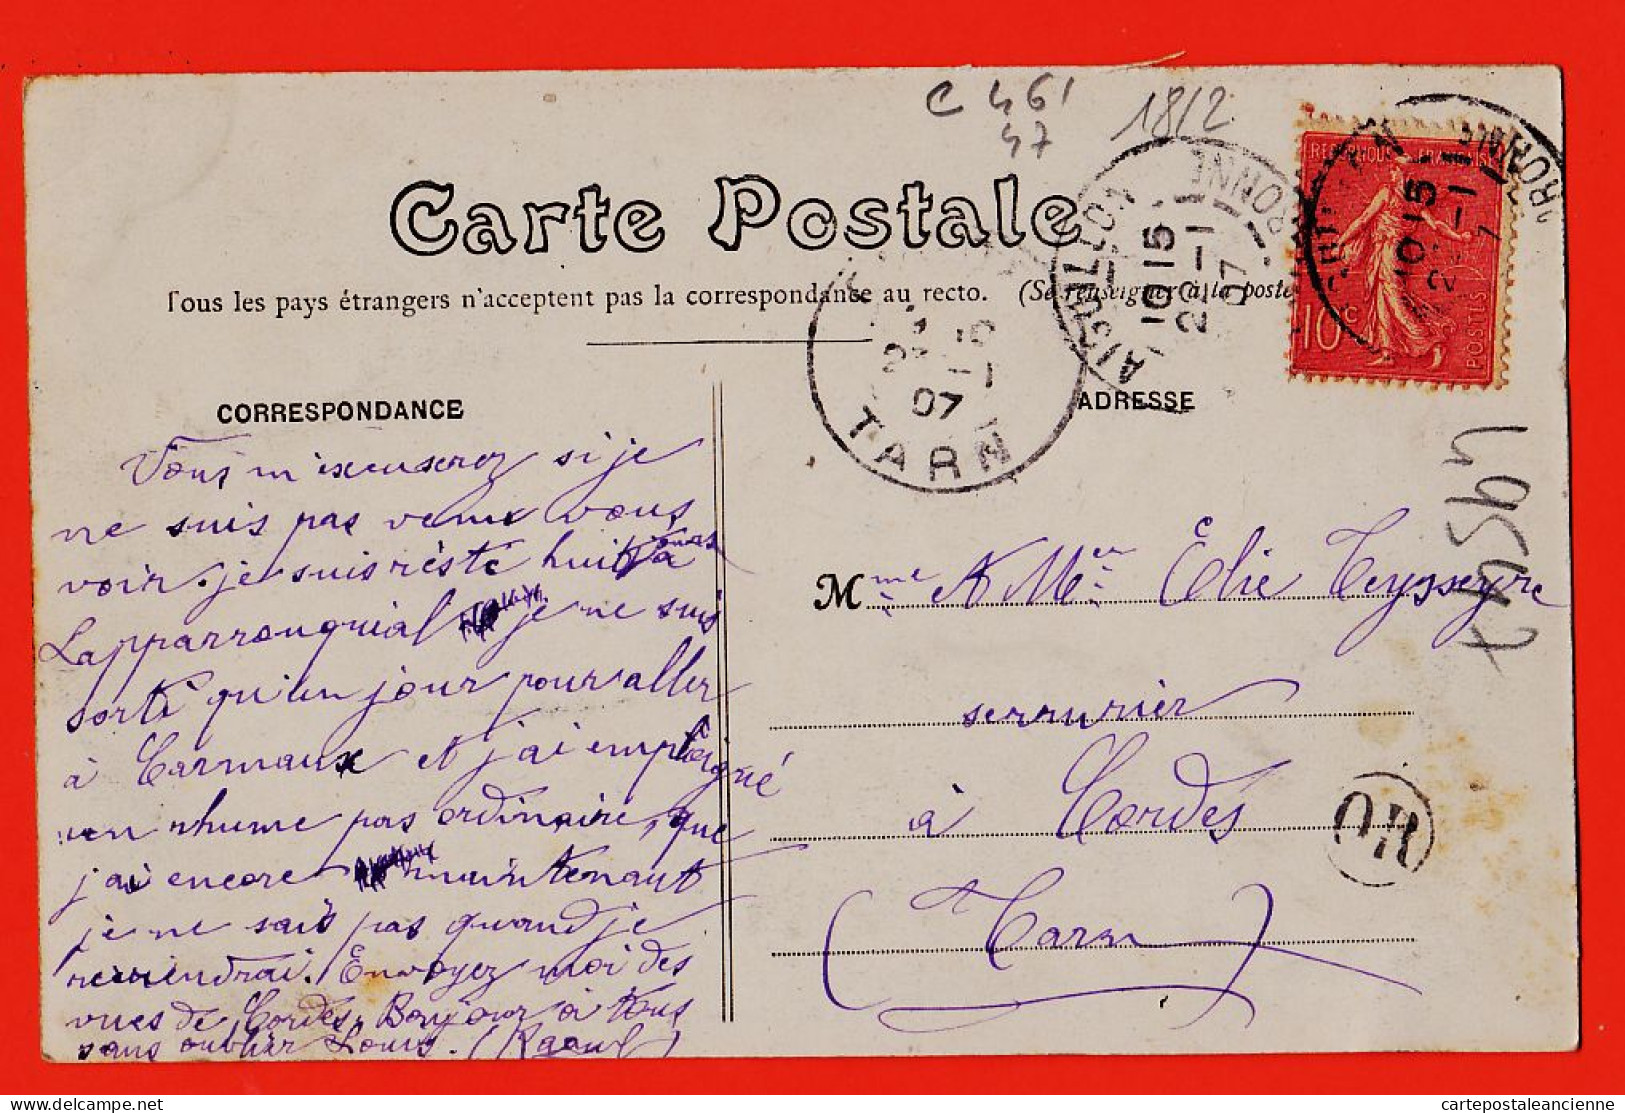 C 461
47
18/2
Carte Postale
Tous les pays étrangers n'acceptent pas la correspondance au recto. (Se renseigner à la poste
AIGUILLON
10 15
2 -1
07
RONNE
10 15
REPUBLIQUE FRANÇAISE
10 c
POSTES
07
TARN
CORRESPONDANCE
ADRESSE
Vous m'excuserez si je
ne suis pas venu vous
voir. je suis rèsté huit jours à
Lapparrouquial je ne suis
sorti qu'un jour pour aller
à Carmaux et j'ai empoigné
un rhume pas ordinaire, que
j'ai encore maintenant
je ne sais pas quand je
reviendrai. Envoyez moi des
vues de Cordes, Bonjour à tous
sans oublier Louis. (Raoul)
Mme & Mer Elie Teysseyre
serrurier
à Cordes
(Tarn)
OR
cartepostaleancienne